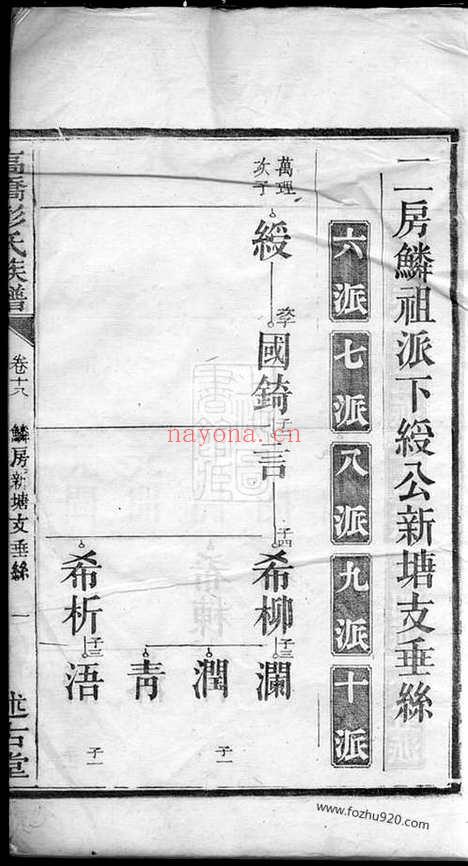 二房鱗祖派下綬公新塘支垂絲
六派 七派 八派 九派 十派
萬理
次子
綬
國錡
子
言
子四
希柳
子三
瀾
潤
子一
青
希析
子三
浯
子一
高橋彭氏族譜
卷十八
鱗房新塘支垂絲
一
述古堂
nayona.cn
www.fozhu920.com